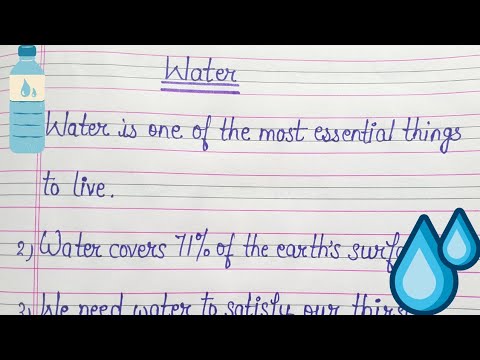 Water
Water is one of the most essential things
to live.
2) Water covers 71% of the earth's
3) We need water to satisfy our